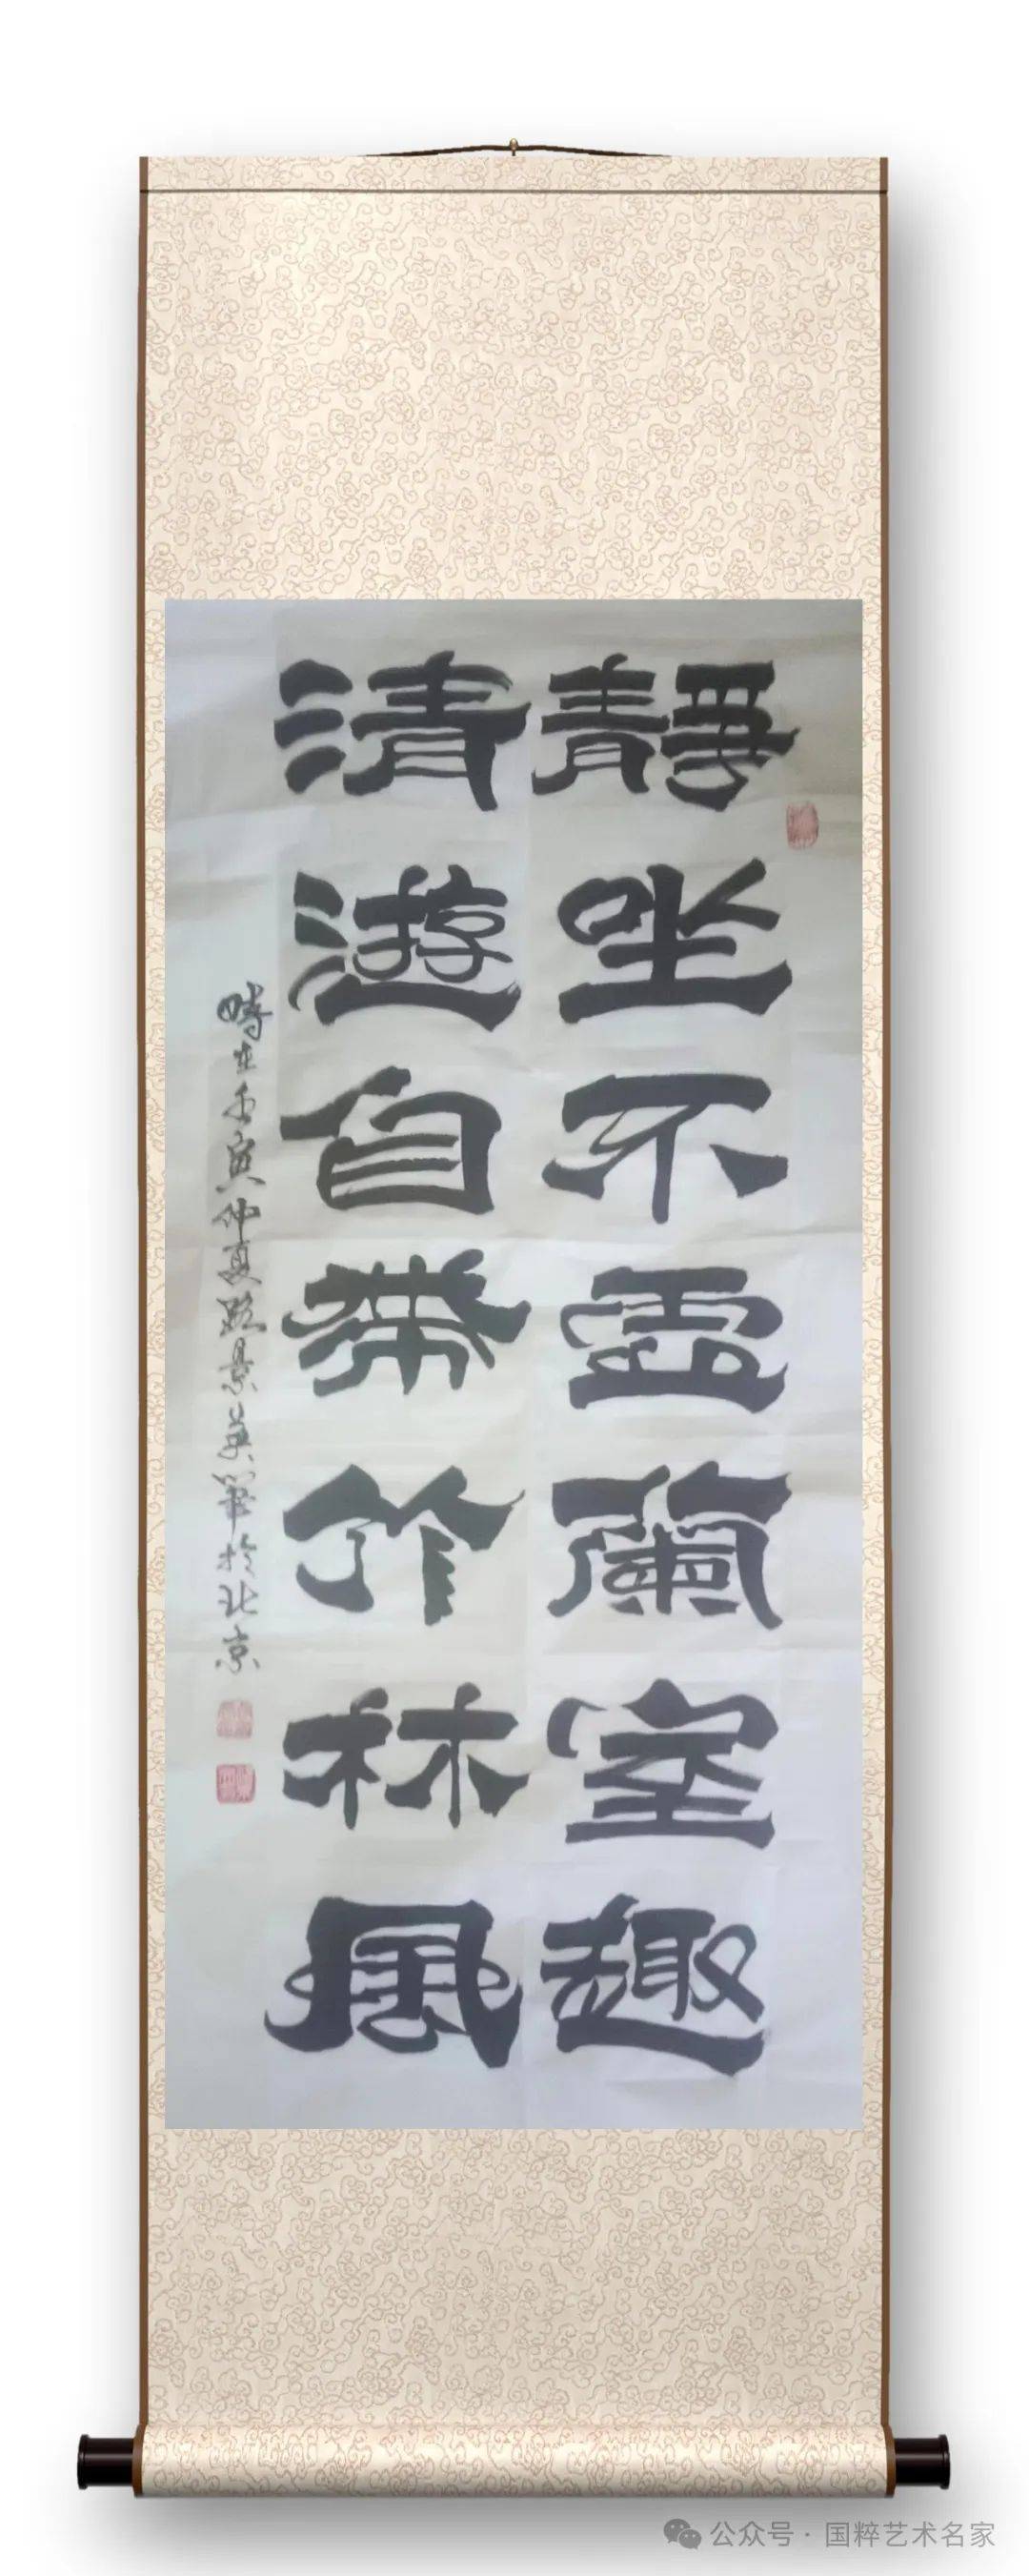 靜坐不虛蘭室趣
清遊自帶竹林風
時在壬寅仲夏路景英筆於北京
公众号·国粹艺术名家